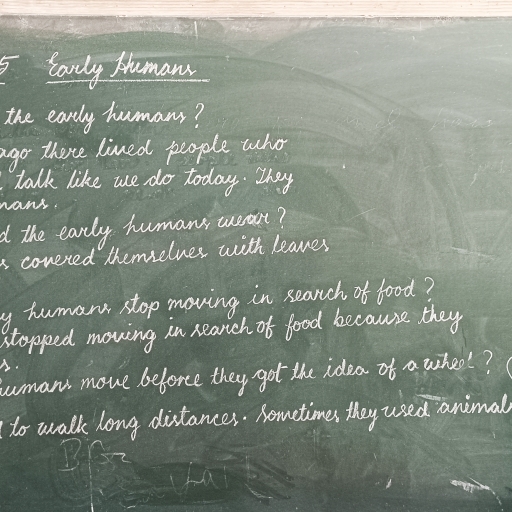 5 Early Humans
the early humans?
ago there lived people who
talk like we do today. They
mans.
d the early humans wear?
s covered themselves with leaves
y humans stop moving in search of food?
stopped moving in search of food because they
s.
humans move before they got the idea of a wheel? (
to walk long distances. Sometimes they used animals